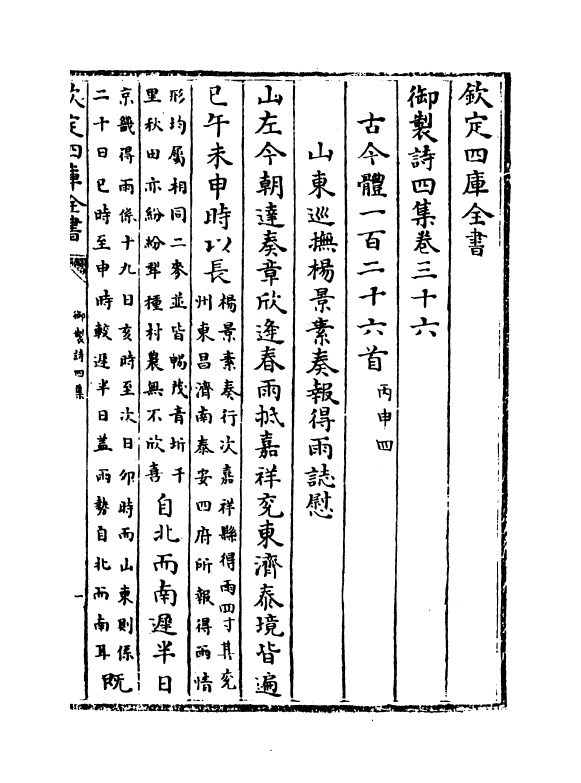 欽定四庫全書
御製詩四集卷三十六
古今體一百二十六首 丙申四
山東巡撫楊景素奏報得雨誌慰
山左今朝達奏章欣逢春雨抵嘉祥兖東濟泰境皆遍
巳午未申時以長
楊景素奏行次嘉祥縣得雨四寸其兖
州東昌濟南泰安四府所報得雨情
形均屬相同二麥並皆暢茂青圻千
里秋田亦紛紛犂種村農無不欣喜
自北而南遲半日
京畿得雨係十九日亥時至次日卯時而山東則係
二十日巳時至申時較遲半日葢雨勢自北而南耳
既
欽定四庫全書
御製詩四集
一